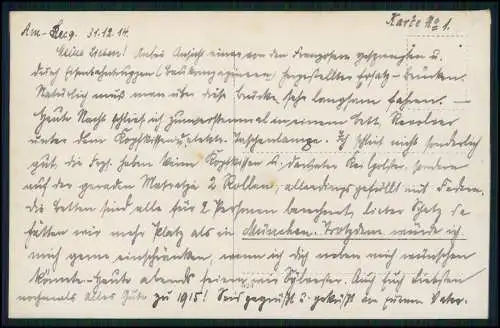 Karte No 1.
Am 31.12.14.
Meine Lieben! Anbei Ansicht einer von den Franzosen gesprengten u.
durch Eisenbahntruppen hergestellter Ersatz-Brücken.
Natürlich muß man über diese Brücke sehr langsam fahren. —
Heute Nacht schlief ich zum erstenmal in einem Bett, Revolver
unter dem Kopfkissen u. elektr. Taschenlampe. Ich schlief nicht sonderlich
gut, die Frzs. haben keine Kopfkissen u. Keilpolster, sondern
auf der geraden Matratze 2 Rollen, allerdings gefüllt mit Federn.
Die Betten sind alle für 2 Personen berechnet, lieber Schatz da
hätten wir mehr Platz als in München. Trotzdem würde ich
mich gerne einschränken, wenn ich Dich neben mich wünschen
könnte. Heute abends feiern wir Sylvester. Auch Euch Liebsten
nochmals alles Gute zu 1915! Seid gegrüßt u. geküßt von Eurem Vater.